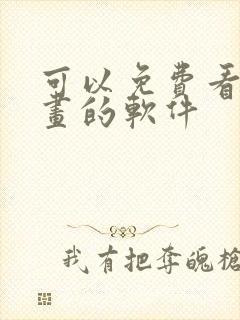 可以免費看
畫的軟件
我有把奪魄槍